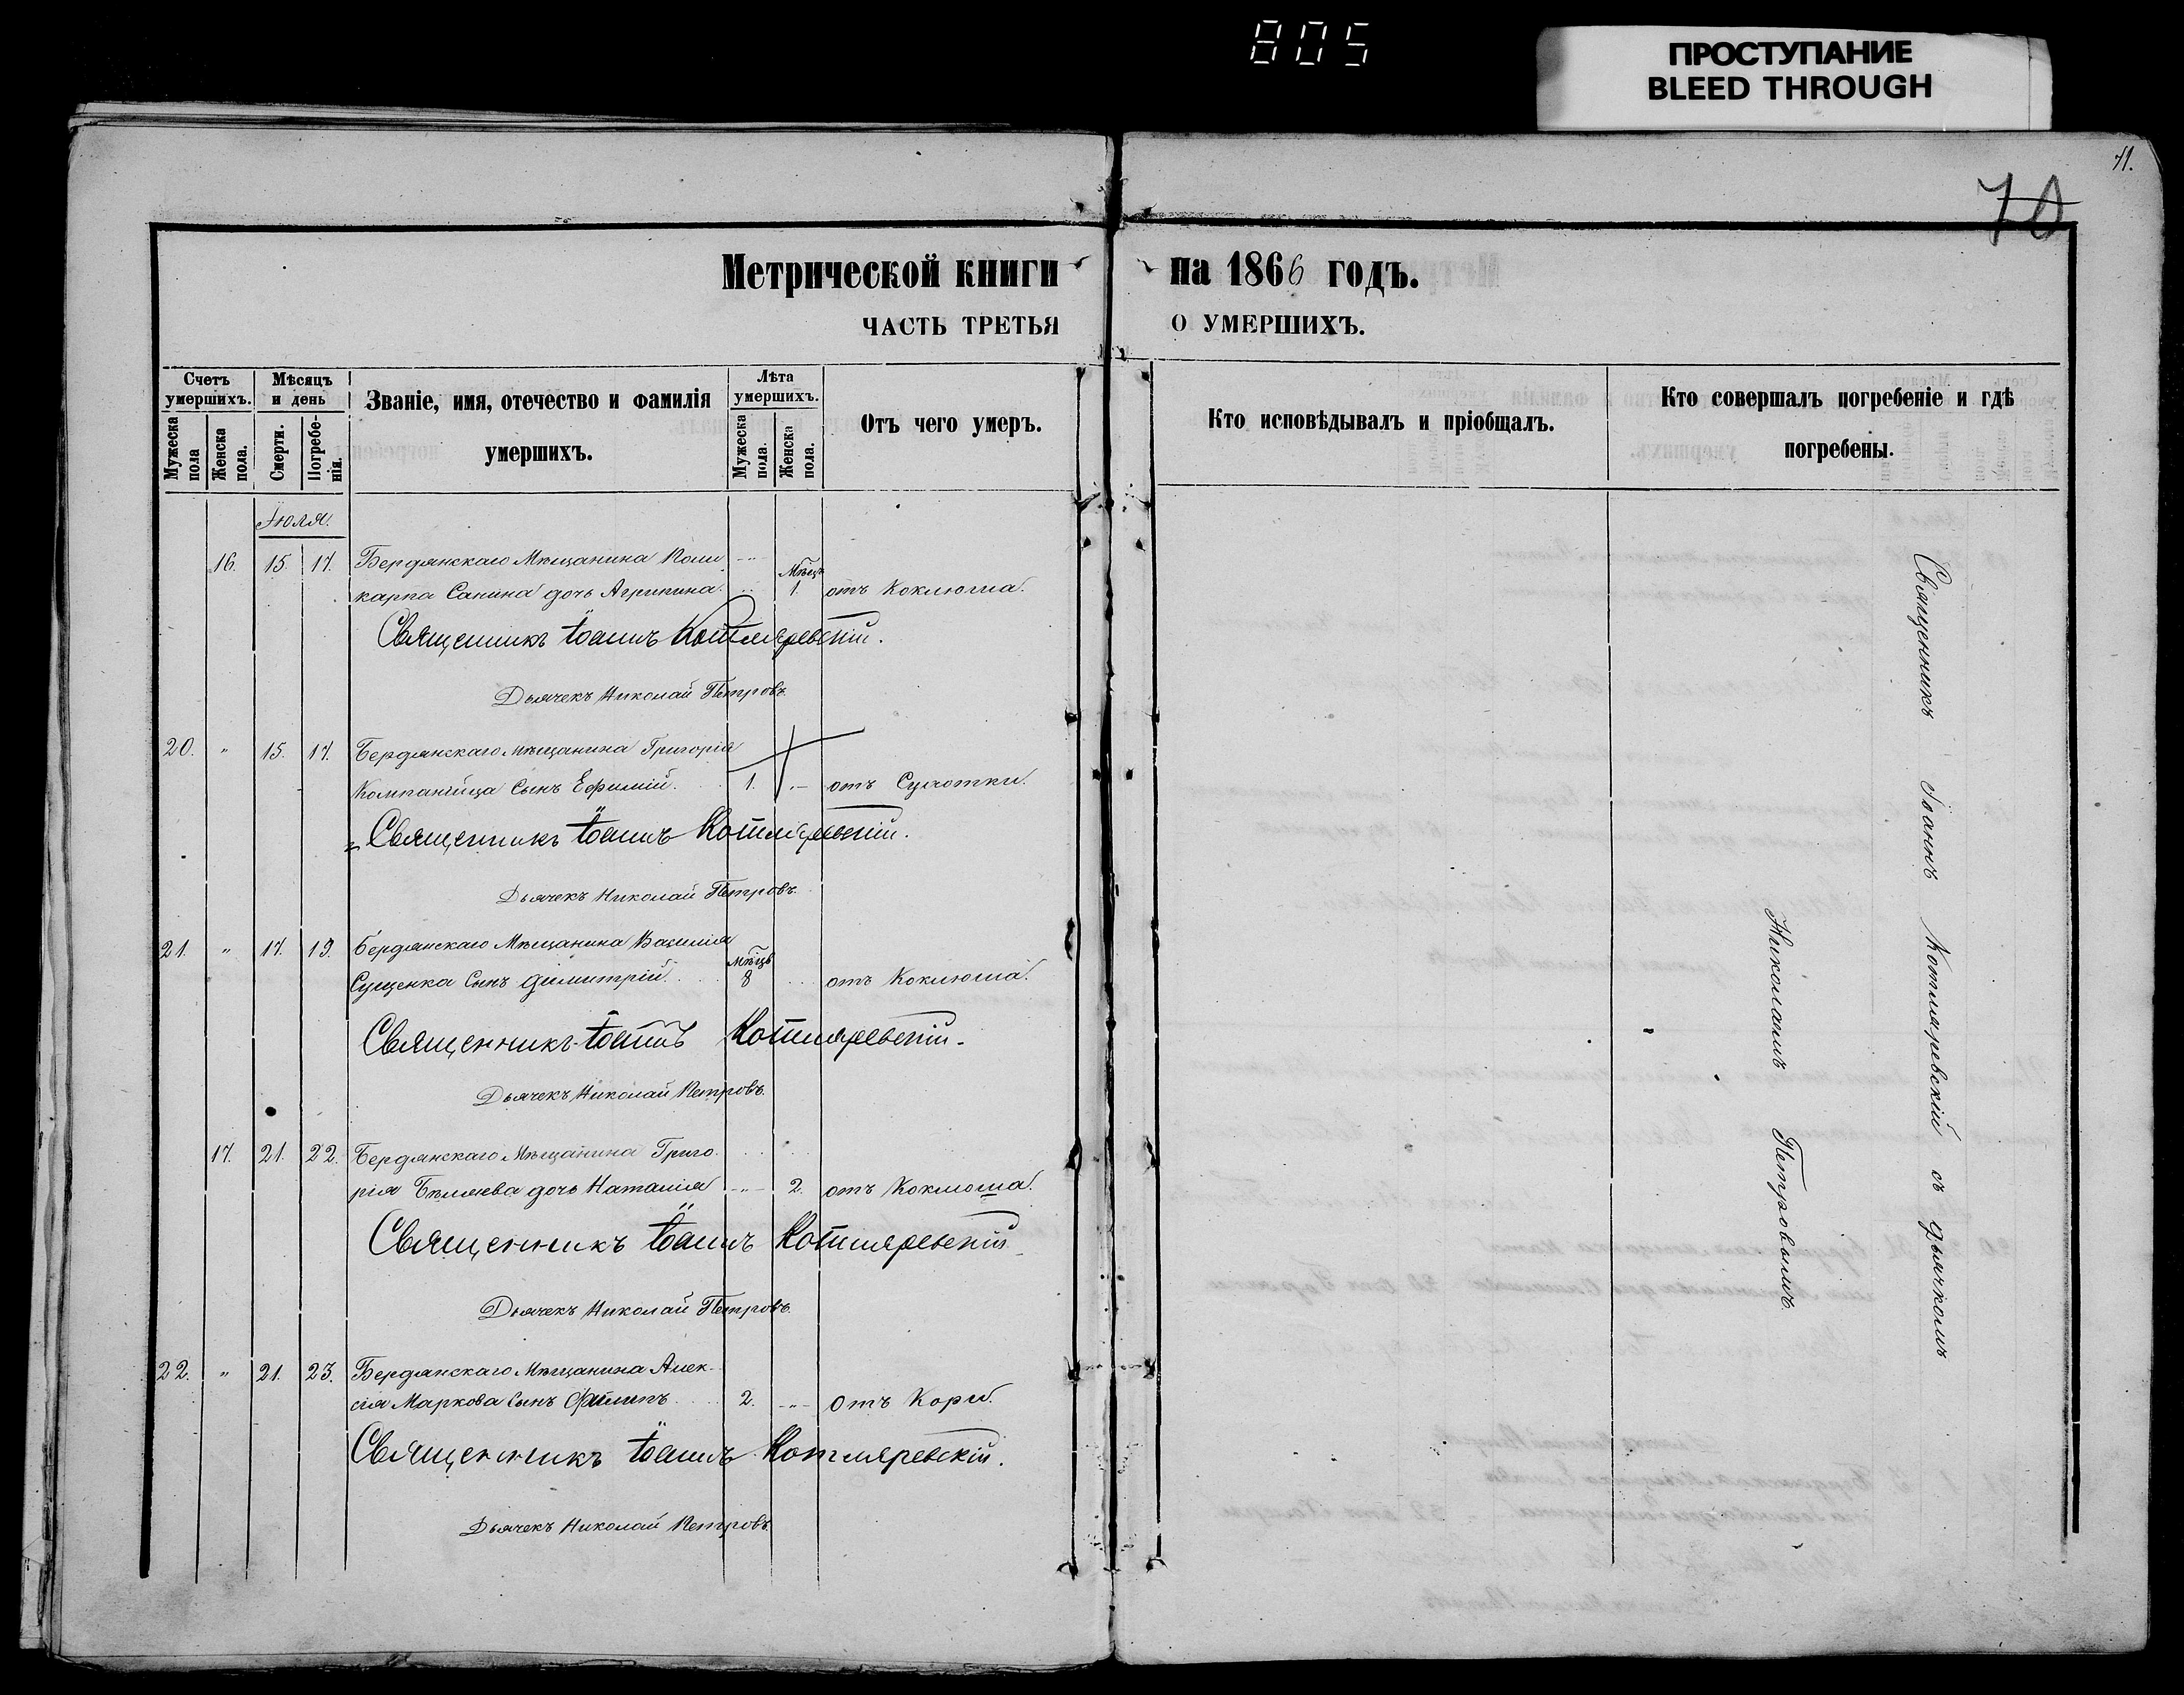 805
ПРОСТУПАНИЕ
BLEED THROUGH
71.
70
Метрической книги на 1866 годъ.
ЧАСТЬ ТРЕТЬЯ О УМЕРШИХЪ.
Счетъ умершихъ.
Мужеска пола
Женска пола.
Мѣсяцъ и день
Смерти.
Погребенія.
Званіе, имя, отечество и фамилія умершихъ.
Лѣта умершихъ.
Мужеска пола.
Женска пола.
Отъ чего умеръ.
Кто исповѣдывалъ и пріобщалъ.
Кто совершалъ погребеніе и гдѣ
погребены.
Іюля.
16. 15. 17. Бердянскаго Мѣщанина Поли
карпа Санина дочь Агрипина. Мѣсц. 1. отъ Коклюша.
Священникъ Іоаннъ Котляревскій.
Дьячекъ Николай Петровъ.
20. " 15. 17. Бердянскаго Мѣщанина Григорія
Компанійца Сынъ Ефимій. 1. отъ Сухотки.
Священникъ Іоаннъ Котляревскій.
Дьячекъ Николай Петровъ.
21. " 17. 19. Бердянскаго Мѣщанина Василія
Сущенка Сынъ Димитрій. Мѣсцъ 8 отъ Коклюша.
Священникъ Іоаннъ Котляревскій.
Дьячекъ Николай Петровъ.
17. 21. 22. Бердянскаго Мѣщанина Григо
рія Бѣляева дочь Наталія 2. отъ Коклюша.
Священникъ Іоаннъ Котляревскій
Дьячекъ Николай Петровъ.
22. " 21. 23. Бердянскаго Мѣщанина Алек
сія Маркова Сынъ Филипъ 2. отъ Кори.
Священникъ Іоаннъ Котляревскій.
Дьячекъ Николай Петровъ.
Священникъ Іоаннъ Котляревскій съ дьячкомъ
Николаемъ Петровымъ.